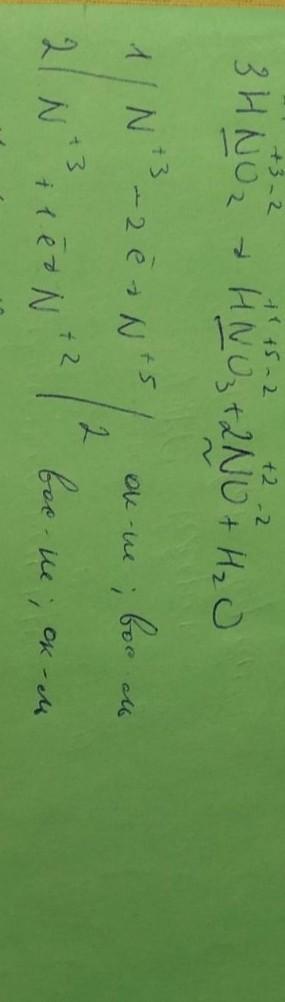 3HN⁺³O₂⁻² → H⁺¹N⁺⁵O₃⁻² + 2N⁺²O⁻² + H₂O
1 | N⁺³ - 2ē → N⁺⁵ | ок-ие ; вос-ль
2 | N⁺³ + 1ē → N⁺² | 2 вос-ие ; ок-ль